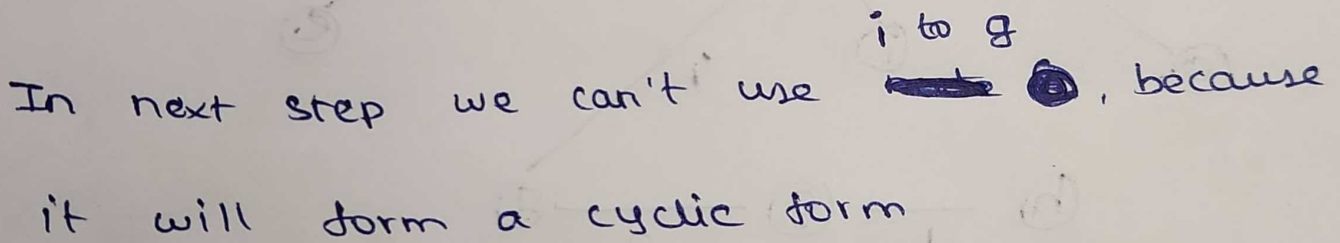 i to g
In next step we can't use , because
it will form a cyclic form